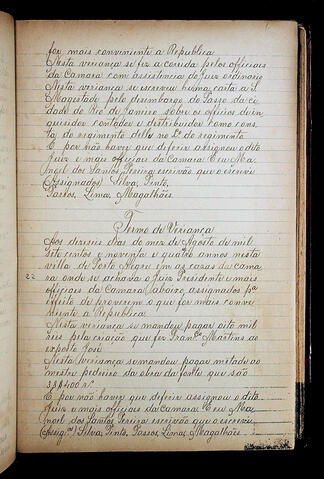 for mais conveniente a Republica
Nesta veriança se fez a corrida pelos officiaes
da Camara com assistencia do Juiz ordinario
Nesta veriança se escreveu huma carta a S.
Magestade pelo desembargo do Passo da ci-
dade do Rio de Janeiro sobre os officios de in-
queridor contador e destribuidor como cons-
ta do regimento delle no Lº do regimento
E por não haver que deferir assignou o dito
Juiz e mais officiaes da Camara E eu Ma-
noel dos Santos Pereira escrivão que o escrevi
(Assignados) Silva, Pinto,
Passos, Lima, Magalhães.
Termo de Veriança
Aos dezeseis dias do mez de Agosto de mil
sete centos e noventa e quatro annos nesta
villa de Porto Alegre em as cazas da cama-
22 ra onde se achava o Juiz Presidente e mais
officiaes da Camara abaixo assignados pª
effeito de proverem o que for mais conve-
niente a Republica
Nesta veriança se mandou pagar oito mil
reis pela criação que fez Franco Martins ao
exposto José
Nesta veriança se mandou pagar metade ao
mestre pedreiro da obra da fonte que são
38$400 rs
E por não haver que deferir assignou o dito
Juiz e mais officiaes da Camara E eu Ma-
noel dos Santos Pereira escrivão que o escrevi
(Assigos) Silva, Pinto, Passos, Lima, Magalhães